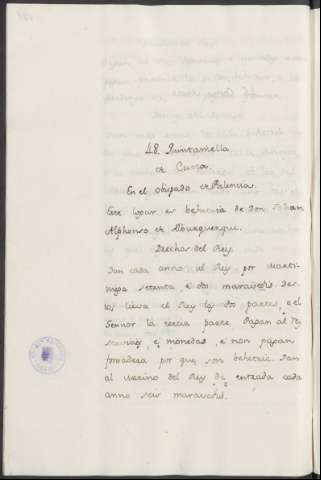 48. Quintaniella
de Cueza
En el obispado de Palencia.
Este logar es behetria de Don Johan
Alphonso de Alburquerque.
Derechos del Rey
Dan cada anno al Rey por Marti-
niega setenta e dos maravedis. Des-
tos lieva el Rey las dos partes e el
Sennor la tercia parte. Pagan al Rey
servicios e monedas, e non pagan
fonsadera por que son behetria. Dan
al merino del Rey de entrada cada
anno seis maravedis.